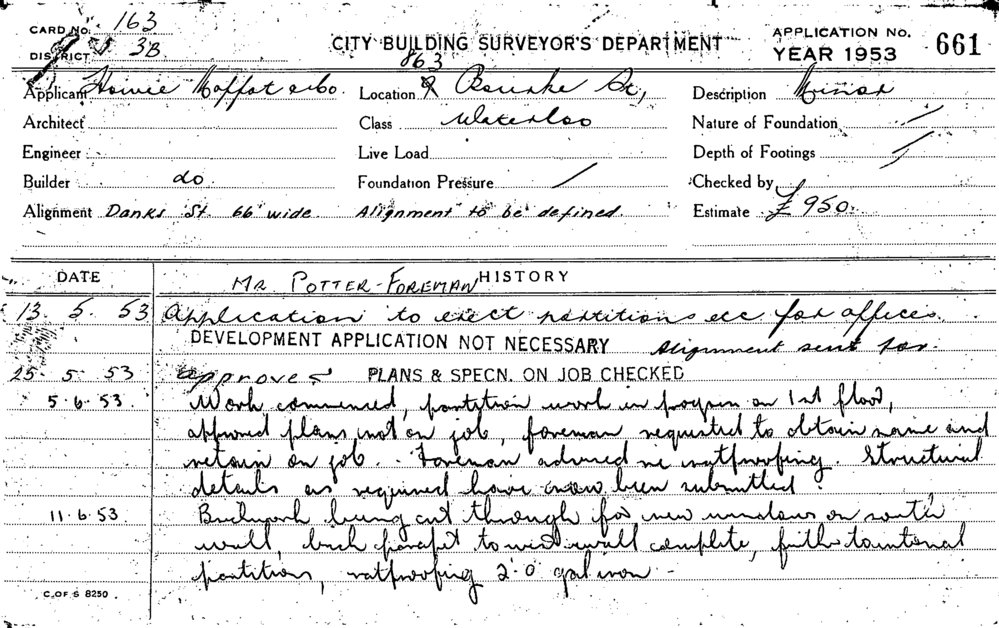 CARD NO. 163
DISTRICT 3B
CITY BUILDING SURVEYOR'S DEPARTMENT
APPLICATION No. 661
YEAR 1953
Applicant Howie Moffat & Co.
Location 863 Bourke St,
Description Minor
Architect
Class Waterloo
Nature of Foundation /
Engineer
Live Load
Depth of Footings /
Builder do
Foundation Pressure /
Checked by
Alignment Danks St. 66' wide. Alignment to be defined.
Estimate £950.
DATE
HISTORY
MR POTTER-FOREMAN
13. 5. 53 Application to erect partitions etc for offices.
DEVELOPMENT APPLICATION NOT NECESSARY Alignment sent for.
25 5 53 approved PLANS & SPECN. ON JOB CHECKED
5.6.53. Work commenced, partition work in progress on 1st floor,
approved plans not on job, foreman requested to obtain same and
retain on job. Foreman advised re ratproofing. Structural
details as required have now been submitted.
11.6.53 Brickwork being cut through for new windows on south
wall, brick parapet to west wall complete, further to internal
partitions, ratproofing 2'0 gal iron -
C. OF S 8250